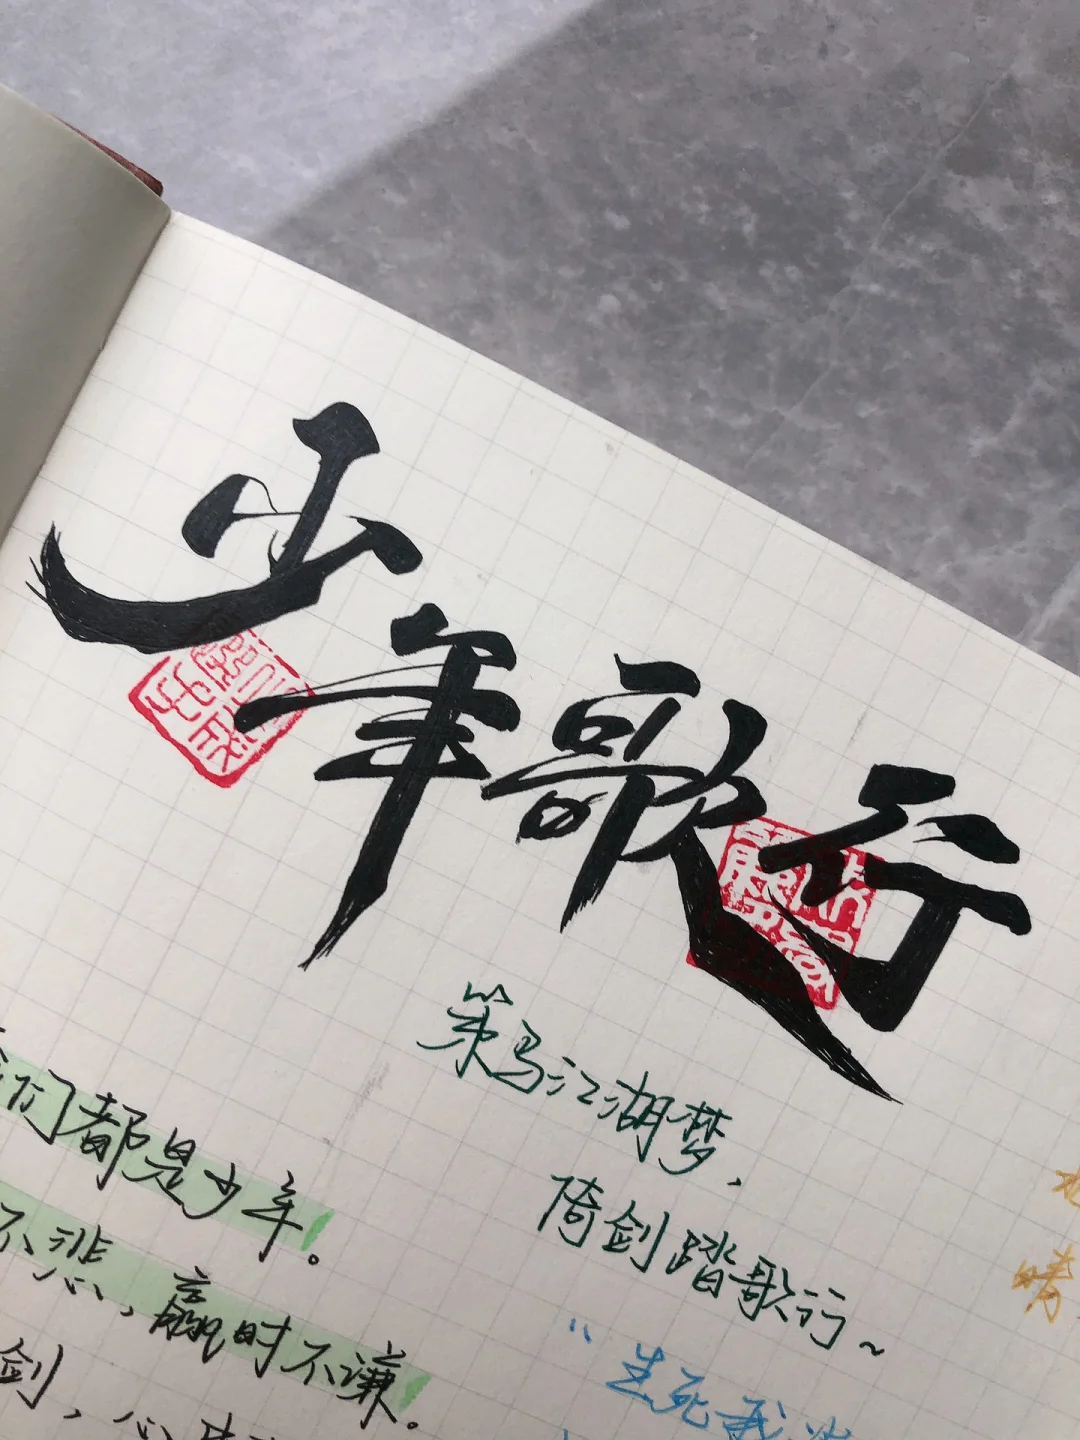 少年歌行
们都是少年。
不悲，赢时不谦。
剑，心
策马江湖梦，
倚剑踏歌行~
“生死我
晴